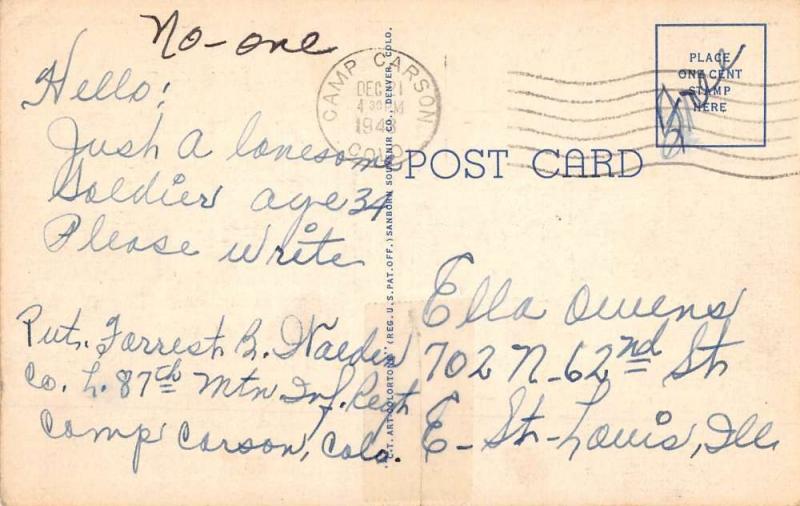 No-one
Hello!
Just a lonesome
Soldier age 34
Please write
Pvt. Forrest B.
Co. L. 87th Mtn Inf. Regt
Camp Carson, Colo.
CAMP CARSON
DEC 21
4 30 PM
1943
COLO.
"C.T. ART-COLORTONE" (REG. U.S. PAT. OFF.) SANBORN SOUVENIR CO., DENVER, COLO.
POST CARD
PLACE
ONE CENT
STAMP
HERE
Free
Ella Owens
702 N-62nd St
E-St-Louis, Ill